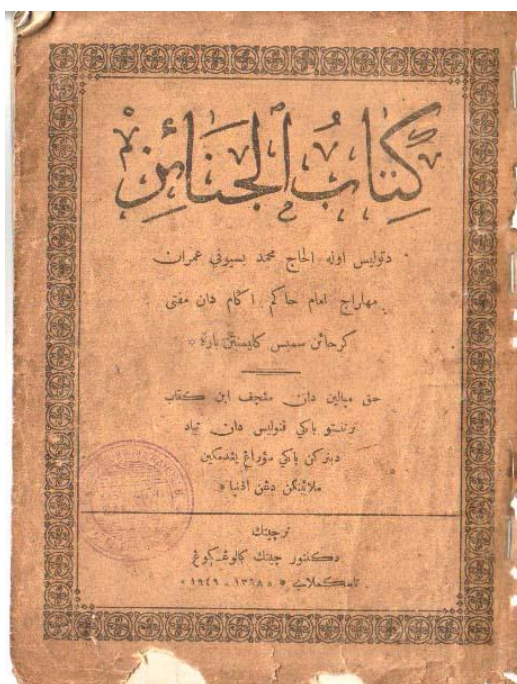 كِتَابُ الجَنَائِزِ
دتوليس اوله الحاج محمد بسيوني عمران
مهاراج امام حاكم اڬام دان مفتي
كرجائن سمبس كاليمنتن بارة
حق مپالين دان منچيتق اين كتاب
ترتنتو باݢي ڤنوليس دان تياد
دبنركن باݢي سؤرڠ يڠدمكين
ملاينكن دڠن اذنڽ
ترچيتق
دكنتور چيتق كالوڠ ڬوڠ
تاسكملاي « ١٣٦٨ - ١٩٤٩ »